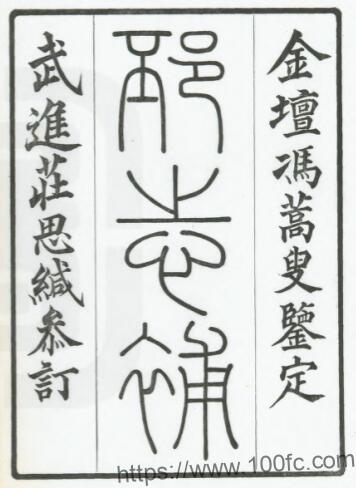 金壇馮蒿叟鑒定
邳志補
武進莊思緘叅訂
https://www.100fc.com